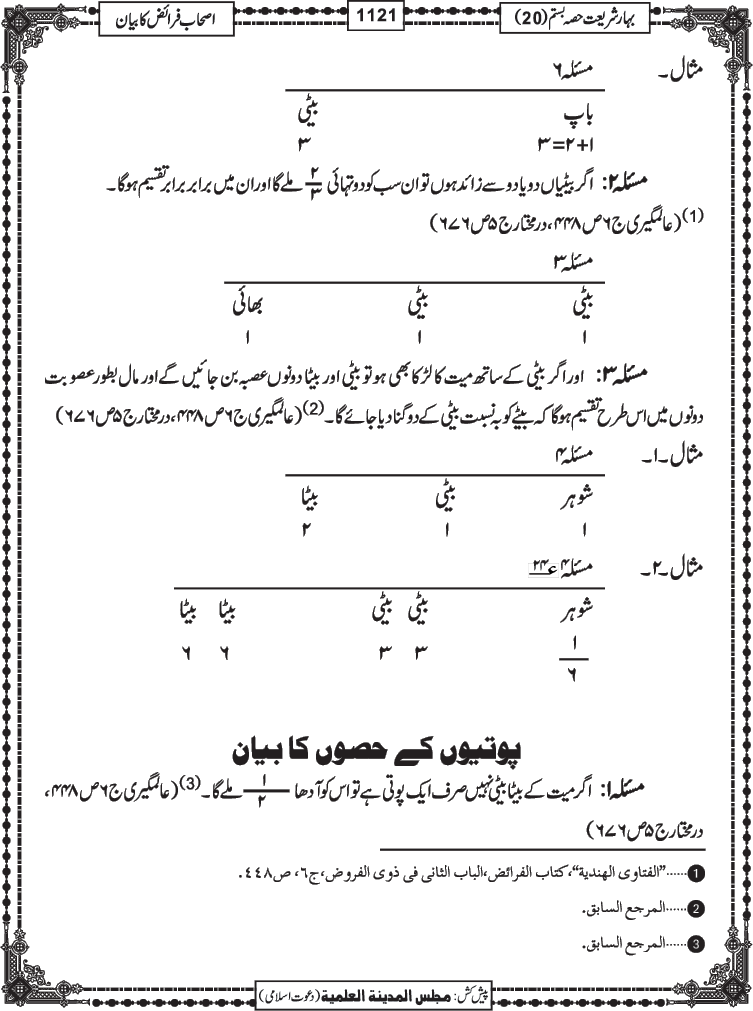 بہار شریعت حصہ بستم (20) 1121 اصحاب فرائض کا بیان
مثال ۔ مسئلہ ۶
باپ بیٹی
۱+۲=۳ ۳
مسئلہ ۲: اگر بیٹیاں دو یا دو سے زائد ہوں تو ان سب کو دو تہائی ۲/۳ ملے گا اور ان میں برابر برابر تقسیم ہوگا۔
(1) (عالمگیری ج۶ ص۴۴۸، درمختار ج۵ ص۶۷۶)
مسئلہ ۳
بیٹی بیٹی بھائی
۱ ۱ ۱
مسئلہ ۳: اور اگر بیٹی کے ساتھ میت کا لڑکا بھی ہو تو بیٹی اور بیٹا دونوں عصبہ بن جائیں گے اور مال بطور عصوبت
دونوں میں اس طرح تقسیم ہوگا کہ بیٹے کو بہ نسبت بیٹی کے دوگنا دیا جائے گا۔ (2) (عالمگیری ج۶ ص۴۴۸، درمختار ج۵ ص۶۷۶)
مثال ۔۱۔ مسئلہ ۴
شوہر بیٹی بیٹا
۱ ۱ ۲
مثال ۔۲۔ مسئلہ ۴ ع ۲۴
شوہر بیٹی بیٹی بیٹا بیٹا
۱/۶ ۳ ۳ ۶ ۶
پوتیوں کے حصوں کا بیان
مسئلہ ۱: اگر میت کے بیٹا بیٹی نہیں صرف ایک پوتی ہے تو اس کو آدھا ۱/۲ ملے گا۔ (3) (عالمگیری ج۶ ص۴۴۸،
درمختار ج۵ ص۶۷۶)
1 ......"الفتاوى الهندية"، كتاب الفرائض، الباب الثانى فى ذوى الفروض، ج٦، ص٤٤٨.
2 ......المرجع السابق.
3 ......المرجع السابق.
پیش کش: مجلس المدينة العلمية (دعوت اسلامی)